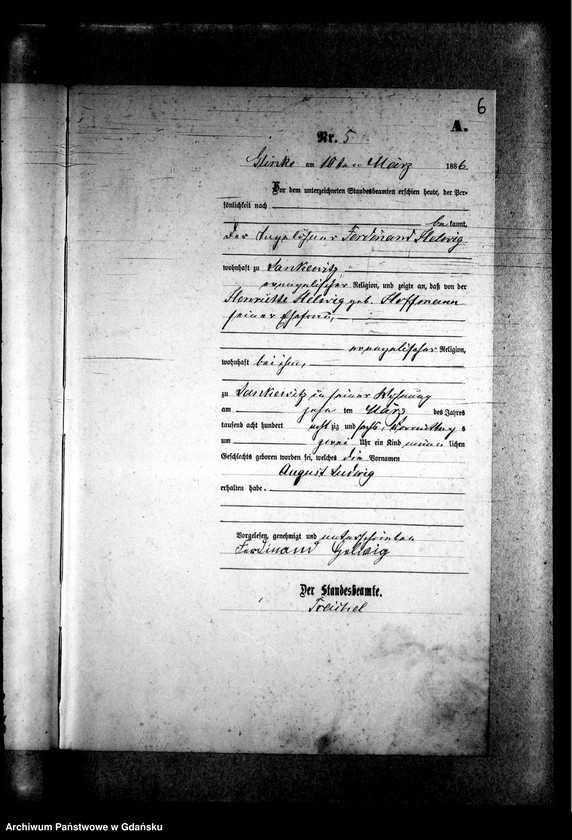 6
A.
Nr. 5
Glinke am 10ten März 1886
Vor dem unterzeichneten Standesbeamten erschien heute, der Per-
sönlichkeit nach
bekannt,
der Ferdinand Helwig
wohnhaft zu
evangelischer Religion, und zeigte an, daß von der
Henriette Helwig geb. Hoffmann
seiner Ehefrau,
evangelischer Religion,
wohnhaft bei ihm,
zu in seiner Wohnung
am ten März des Jahres
tausend acht hundert achtzig und sechs, Vormittags
um zwei Uhr ein Kind männlichen
Geschlechts geboren worden sei, welches die Vornamen
August Ludwig
erhalten habe.
Vorgelesen, genehmigt und unterschrieben
Ferdinand
Der Standesbeamte.
Treichel
Archiwum Państwowe w Gdańsku